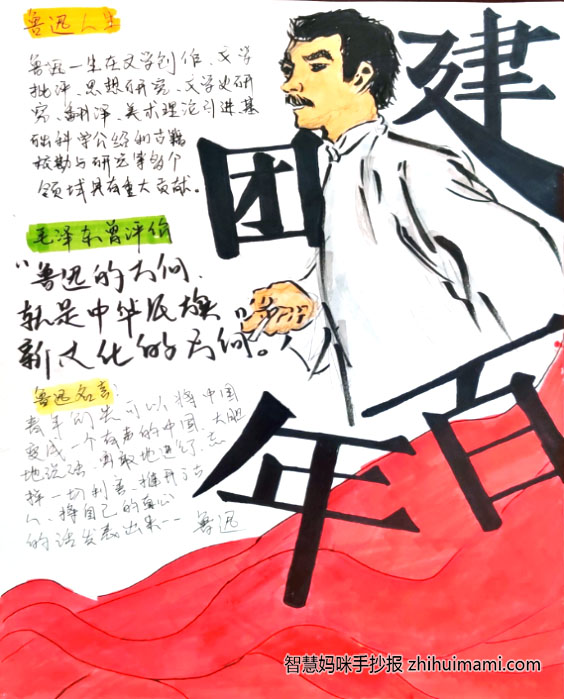 建团百年
鲁迅人生
鲁迅一生在文学创作、文学
批评、思想研究、文学史研
究、翻译、美术理论引进、基
础科学介绍和古籍
校勘与研究等多个
领域具有重大贡献。
毛泽东曾评价
“鲁迅的方向,
就是中华民族
新文化的方向。”
鲁迅名言:
青年们先可以将中国
变成一个有声的中国。大胆
地说话,勇敢地进行,忘
掉一切利害,推开了古
人,将自己的真心
的话发表出来—— 鲁迅
智慧妈咪手抄报 zhihuimami.com